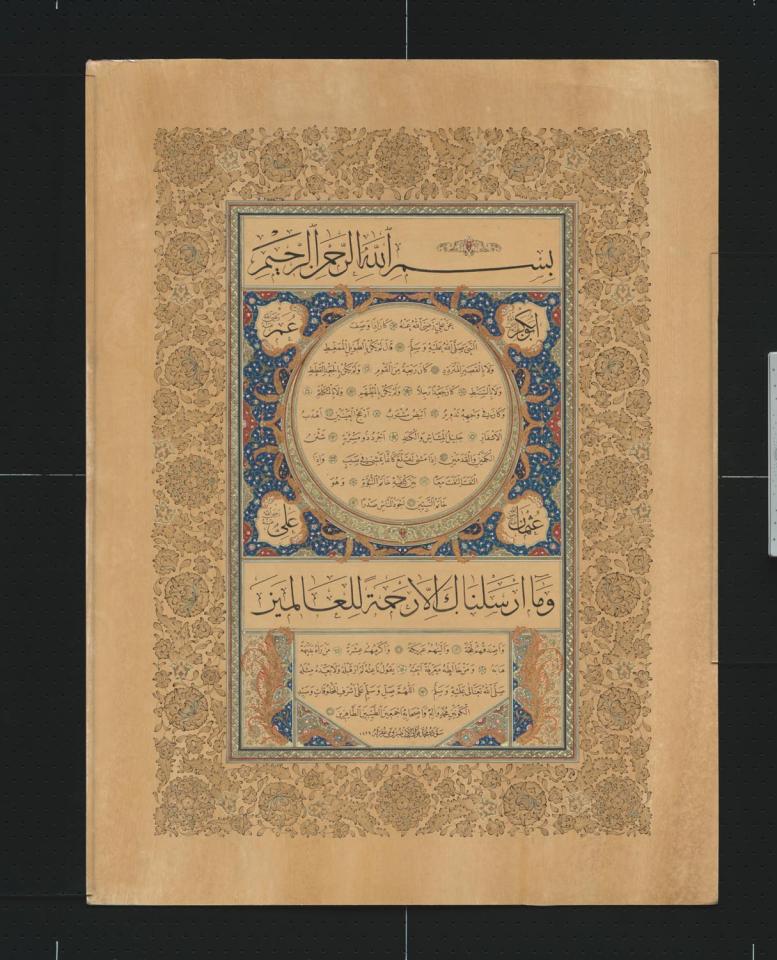 بِسْمِ اللَّهِ الرَّحْمٰنِ الرَّحِيمِ
ابوبكر
عمر
عن علي رضي الله عنه كان اذا وصف
النبي صلى الله عليه وسلم قال لم يكن بالطويل الممغط
ولا بالقصير المتردد كان ربعة من القوم ولم يكن بالجعد القطط
ولا بالسبط كان جعدا رجلا ولم يكن بالمطهم ولا بالمكلثم
وكان في وجهه تدوير ابيض مشرب ادعج العينين اهدب
الاشفار جليل المشاش والكتد اجرد ذو مسربة شثن
الكفين والقدمين اذا مشى تقلع كانما يمشي في صبب واذا
التفت التفت معا بين كتفيه خاتم النبوة وهو
خاتم النبيين اجود الناس صدرا
عثمان
علي
وَمَا اَرْسَلْنَاكَ اِلَّا رَحْمَةً لِلْعَالَمِينَ
واصدقهم لهجة والينهم عريكة واكرمهم عشرة من راه بديهة
هابه ومن خالطه معرفة احبه يقول ناعته لم ار قبله ولا بعده مثله
صلى الله تعالى عليه وسلم اللهم صل وسلم على اشرف المخلوقات وسيد
الكونين محمد واله واصحابه اجمعين الطيبين الطاهرين